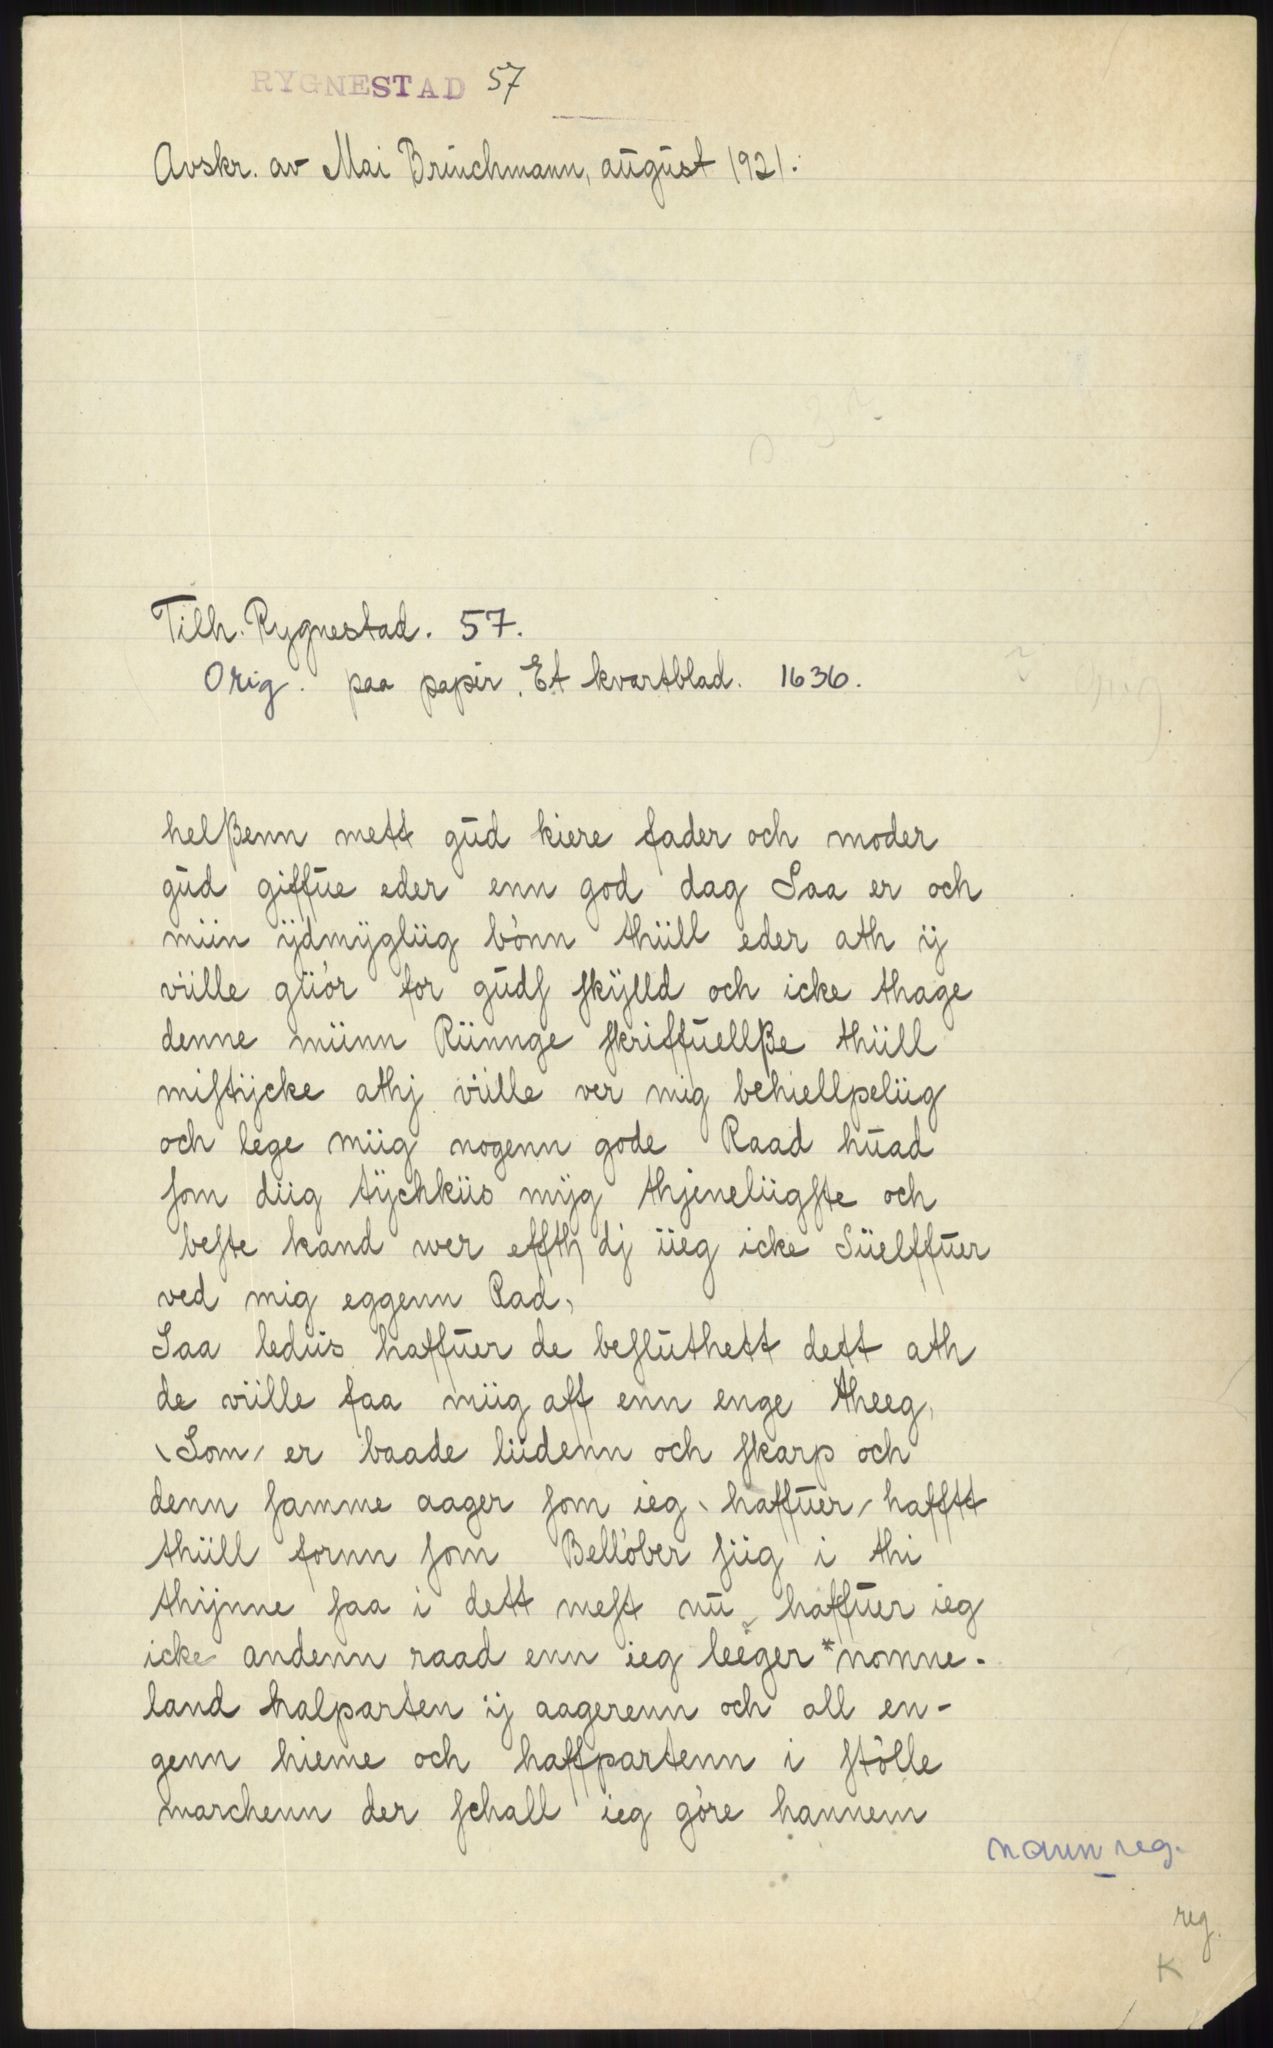 RYGNESTAD 57
Avskr. av Mai Bruchmann, august 1921.
Tilh. Rygnestad. 57.
Orig. paa papir. Et kvartblad. 1636.
helßenn mett gud kiere fader och moder
gud giffue eder enn god dag Saa er och
miin ÿdmÿgliig bónn thiill eder ath ij
viille giiór for gudſ ſkÿlld och icke thage
denne miinn Riinnge ſkriffuellße thiill
miſtÿcke athj viille ver mig behiellpeliig
och lege miig nogenn gode Raad huad
ſom diig tÿchkiis mÿg thjeneliigſte och
beſte kand wer effth dj iieg icke Siielffuer
ved mig eggenn Rad,
Saa lediis haffuer de beſluthett dett ath
de viille faa miig aff enn enge theeg,
\Som/ er baade liidenn och ſkarp och
denn ſamme aager ſom ieg \haffuer/ hafftt
thiill fornn ſom Bellóber ſiig i thi
thijnne ſaa i dett meſt nu haffuer ieg
icke andenn raad enn ieg leeger *nomne-
land halparten ij aagerenn och all en-
genn hieme och haffpartenn i ſtólle
marchenn der ſchall ieg góre hannem
navn reg.
reg.
K